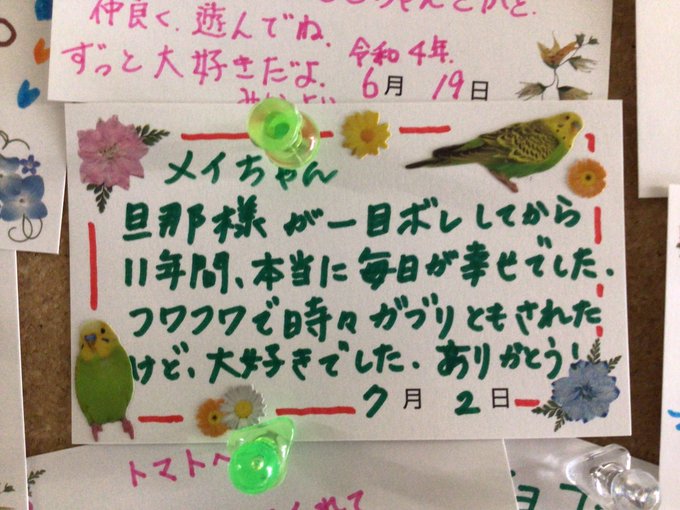 仲良く、遊んでね。
ずっと大好きだよ。令和4年.
6月 19日
メイちゃん
旦那様が一目ボレしてから
11年間、本当に毎日が幸せでした.
フワフワで時々ガブリともされた
けど、大好きでした. ありがとう!
7月 2日
トマトへ